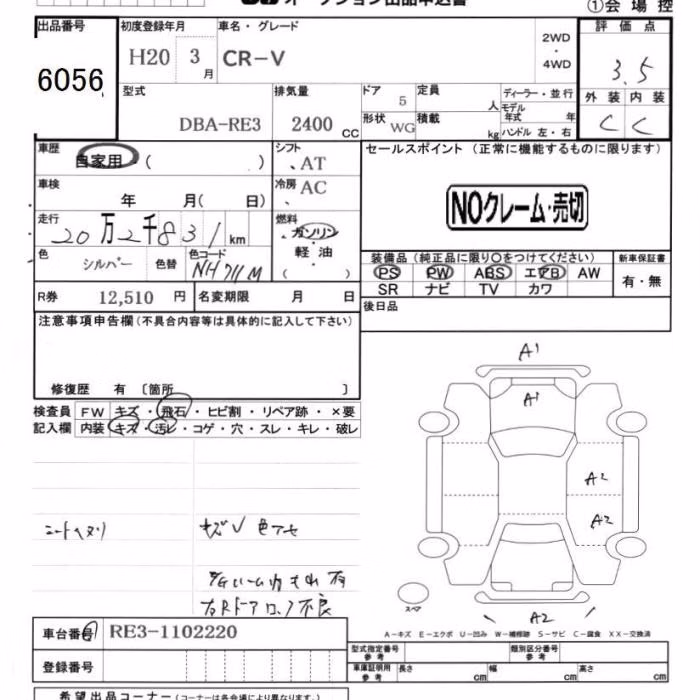 オークション出品申込書
①会場控
出品番号 初度登録年月 車名・グレード 評価点
6056 H20 3月 CR-V 2WD・4WD 3.5
型式 排気量 ドア 定員 人 ディーラー・並行 外装 内装
DBA-RE3 2400cc 5 モデル年式 年 C C
形状 WG 積載 kg ハンドル 左・右
車歴 自家用・( ) シフト 、AT セールスポイント(正常に機能するものに限ります)
車検 年 月( 日) 冷房 、AC NOクレーム・売切
走行 20万2千831km 燃料 ・ガソリン
軽油
・( )
色 シルバー 色替 色コード NH711M
装備品(純正品に限り○をつけてください) 新車保証書
PS PW ABS エアB AW 有・無
SR ナビ TV カワ
R券 12,510円 名変期限 月 日 後日品
注意事項申告欄(不具合内容等は具体的に記入して下さい)
修復歴 有 〔箇所 〕
検査員 FW キズ・飛石・ヒビ割・リペア跡・×要
記入欄 内装 キズ・汚レ・コゲ・穴・スレ・キレ・破レ
A1
A1
A2
A2
シートヘタリ キズV 色アセ
右Rドアロック不良
スペア
A2
A-キズ E-エクボ U-凹み W-補修跡 S-サビ C-腐食 XX-交換済
車台番号 RE3-1102220
型式指定番号 参考 類別区分番号 参考
登録番号 車庫証明用 参考 長さ cm 幅 cm 高さ cm
希望出品コーナー(コーナーは各会場により異なります。)